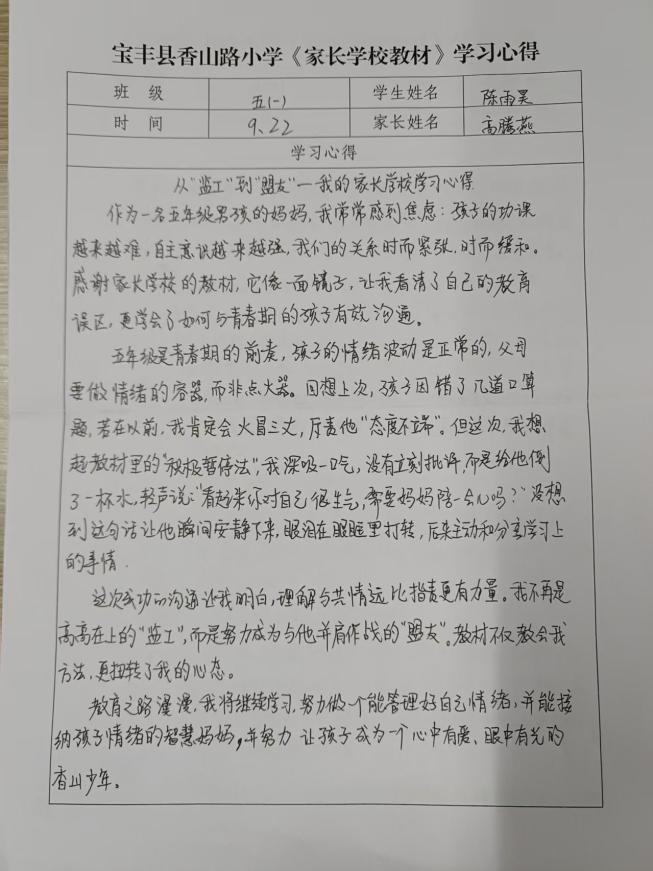 宝丰县香山路小学《家长学校教材》学习心得
班 级 五(一) 学生姓名 陈雨昊
时 间 9、22 家长姓名 高腾燕
学习心得
从“监工”到“盟友”—我的家长学校学习心得
作为一名五年级男孩的妈妈,我常常感到焦虑:孩子的功课
越来越难,自主意识越来越强,我们的关系时而紧张,时而缓和。
感谢家长学校的教材,它像一面镜子,让我看清了自己的教育
误区,更学会了如何与青春期的孩子有效沟通。
五年级是青春期的前奏,孩子的情绪波动是正常的,父母
要做情绪的容器,而非点火器。回想上次,孩子因错了几道口算
题,若在以前,我肯定会火冒三丈,斥责他“态度不端”。但这次,我想
起教材里的“积极暂停法”,我深吸一口气,没有立刻批评,而是给他倒
了一杯水,轻声说:“看起来你对自己很生气,需要妈妈陪一会儿吗?”没想
到这句话让他瞬间安静下来,眼泪在眼眶里打转,后来主动和分享学习上
的事情.
这次成功的沟通让我明白,理解与共情远比指责更有力量。我不再是
高高在上的“监工”,而是努力成为与他并肩作战的“盟友”。教材不仅教会我
方法,更扭转了我的心态。
教育之路漫漫,我将继续学习,努力做一个能管理好自己情绪,并能接
纳孩子情绪的智慧妈妈,并努力让孩子成为一个心中有爱、眼中有光的
香山少年。